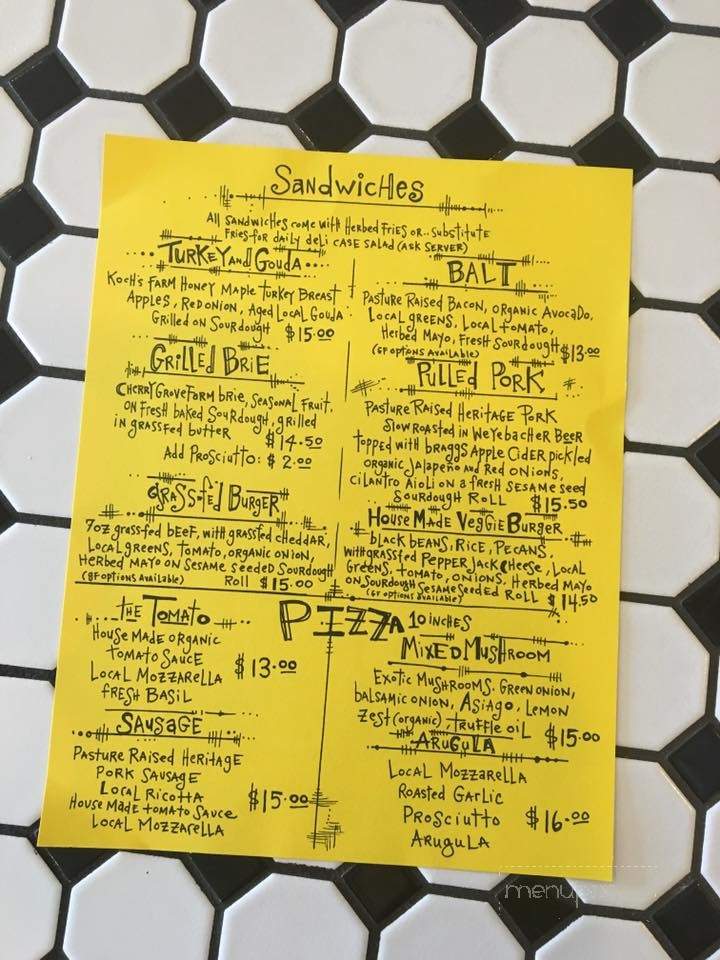 Sandwiches
All Sandwiches come with Herbed Fries or.. Substitute
Fries for daily deli case salad (ask server)
Turkey and Gouda
Koch's Farm Honey Maple Turkey Breast
Apples, Red onion, Aged Local Gouda
Grilled on Sourdough $15.00
Grilled Brie
Cherry Grove Farm brie, Seasonal Fruit,
on Fresh baked Sourdough, grilled
in grassfed butter $14.50
Add Prosciutto: $2.00
Grass-fed Burger
7oz grass-fed beef, with grassfed cheddar,
Local greens, tomato, organic onion,
Herbed mayo on Sesame Seeded Sourdough
(gf options available) Roll $15.00
BALT
Pasture Raised Bacon, organic Avocado,
Local greens, Local tomato,
Herbed Mayo, Fresh Sourdough $13.00
(GF options Available)
Pulled Pork
Pasture Raised Heritage Pork
Slow Roasted in Weyebacher Beer
topped with braggs Apple Cider pickled
organic Jalapeño and Red onions,
Cilantro Aioli on a fresh Sesame seed
Sourdough Roll $15.50
House Made Veggie Burger
black beans, rice, pecans,
with grassfed Pepper Jack Cheese, Local
Greens, tomato, onions, Herbed Mayo
on Sourdough Sesame Seeded Roll $14.50
(GF options available)
Pizza 10 inches
the Tomato
House made organic
tomato sauce
Local Mozzarella $13.00
fresh Basil
Sausage
Pasture Raised Heritage
Pork Sausage
Local Ricotta $15.00
House made tomato sauce
Local Mozzarella
Mixed Mushroom
Exotic Mushrooms, Green onion,
balsamic onion, Asiago, Lemon
Zest (organic), truffle oil $15.00
Arugula
Local Mozzarella
Roasted Garlic
Prosciutto $16.00
Arugula